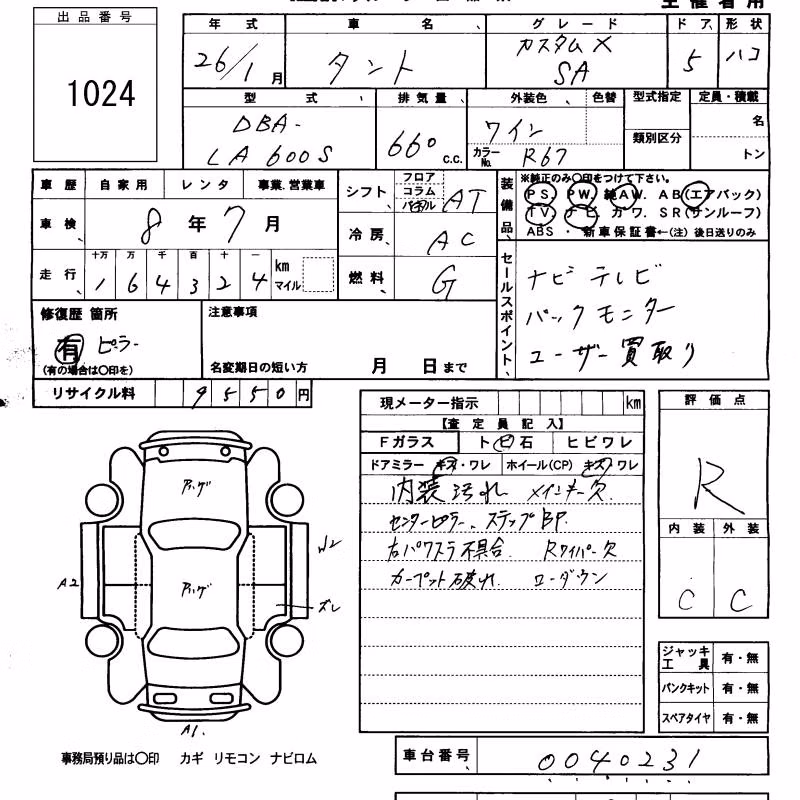 主催者用
出品番号
1024
年式 車名 グレード ドア 形状
26/1月 タント カスタムX SA 5 ハコ
型式 排気量 外装色 色替 型式指定 定員・積載
DBA-LA600S 660 c.c. ワイン カラーNo. R67 類別区分 名 トン
車歴 自家用 レンタ 事業.営業車
車検 8年7月
走行 十万 万 千 百 十 一 km マイル
164324
シフト フロア コラム パネル AT
冷房 AC
燃料 G
装備品 ※純正のみ〇印をつけて下さい。
PS. PW. 純AW. AB(エアバック)
TV. ナビ. カワ. SR(サンルーフ)
ABS ・ 新車保証書←(注) 後日送りのみ
セールスポイント
ナビ テレビ
バックモニター
ユーザー買取り
修復歴 箇所
有 ピラー
(有の場合は〇印を)
注意事項
名変期日の短い方 月 日まで
リサイクル料 9550円
現メーター指示 km
【査定員記入】
Fガラス トビ石 ヒビワレ
ドアミラー キズ・ワレ ホイール(CP) キズ・ワレ
内装汚れ メインキー欠
センターピラー、ステップBP.
右パワスラ不具合. Rワイパー欠
カーペット破れ. ローダウン
評価点
R
内装 外装
C C
ジャッキ工具 有・無
パンクキット 有・無
スペアタイヤ 有・無
W2
A2
ズレ
A1.
事務局預り品は〇印 カギ リモコン ナビロム
車台番号 0040231